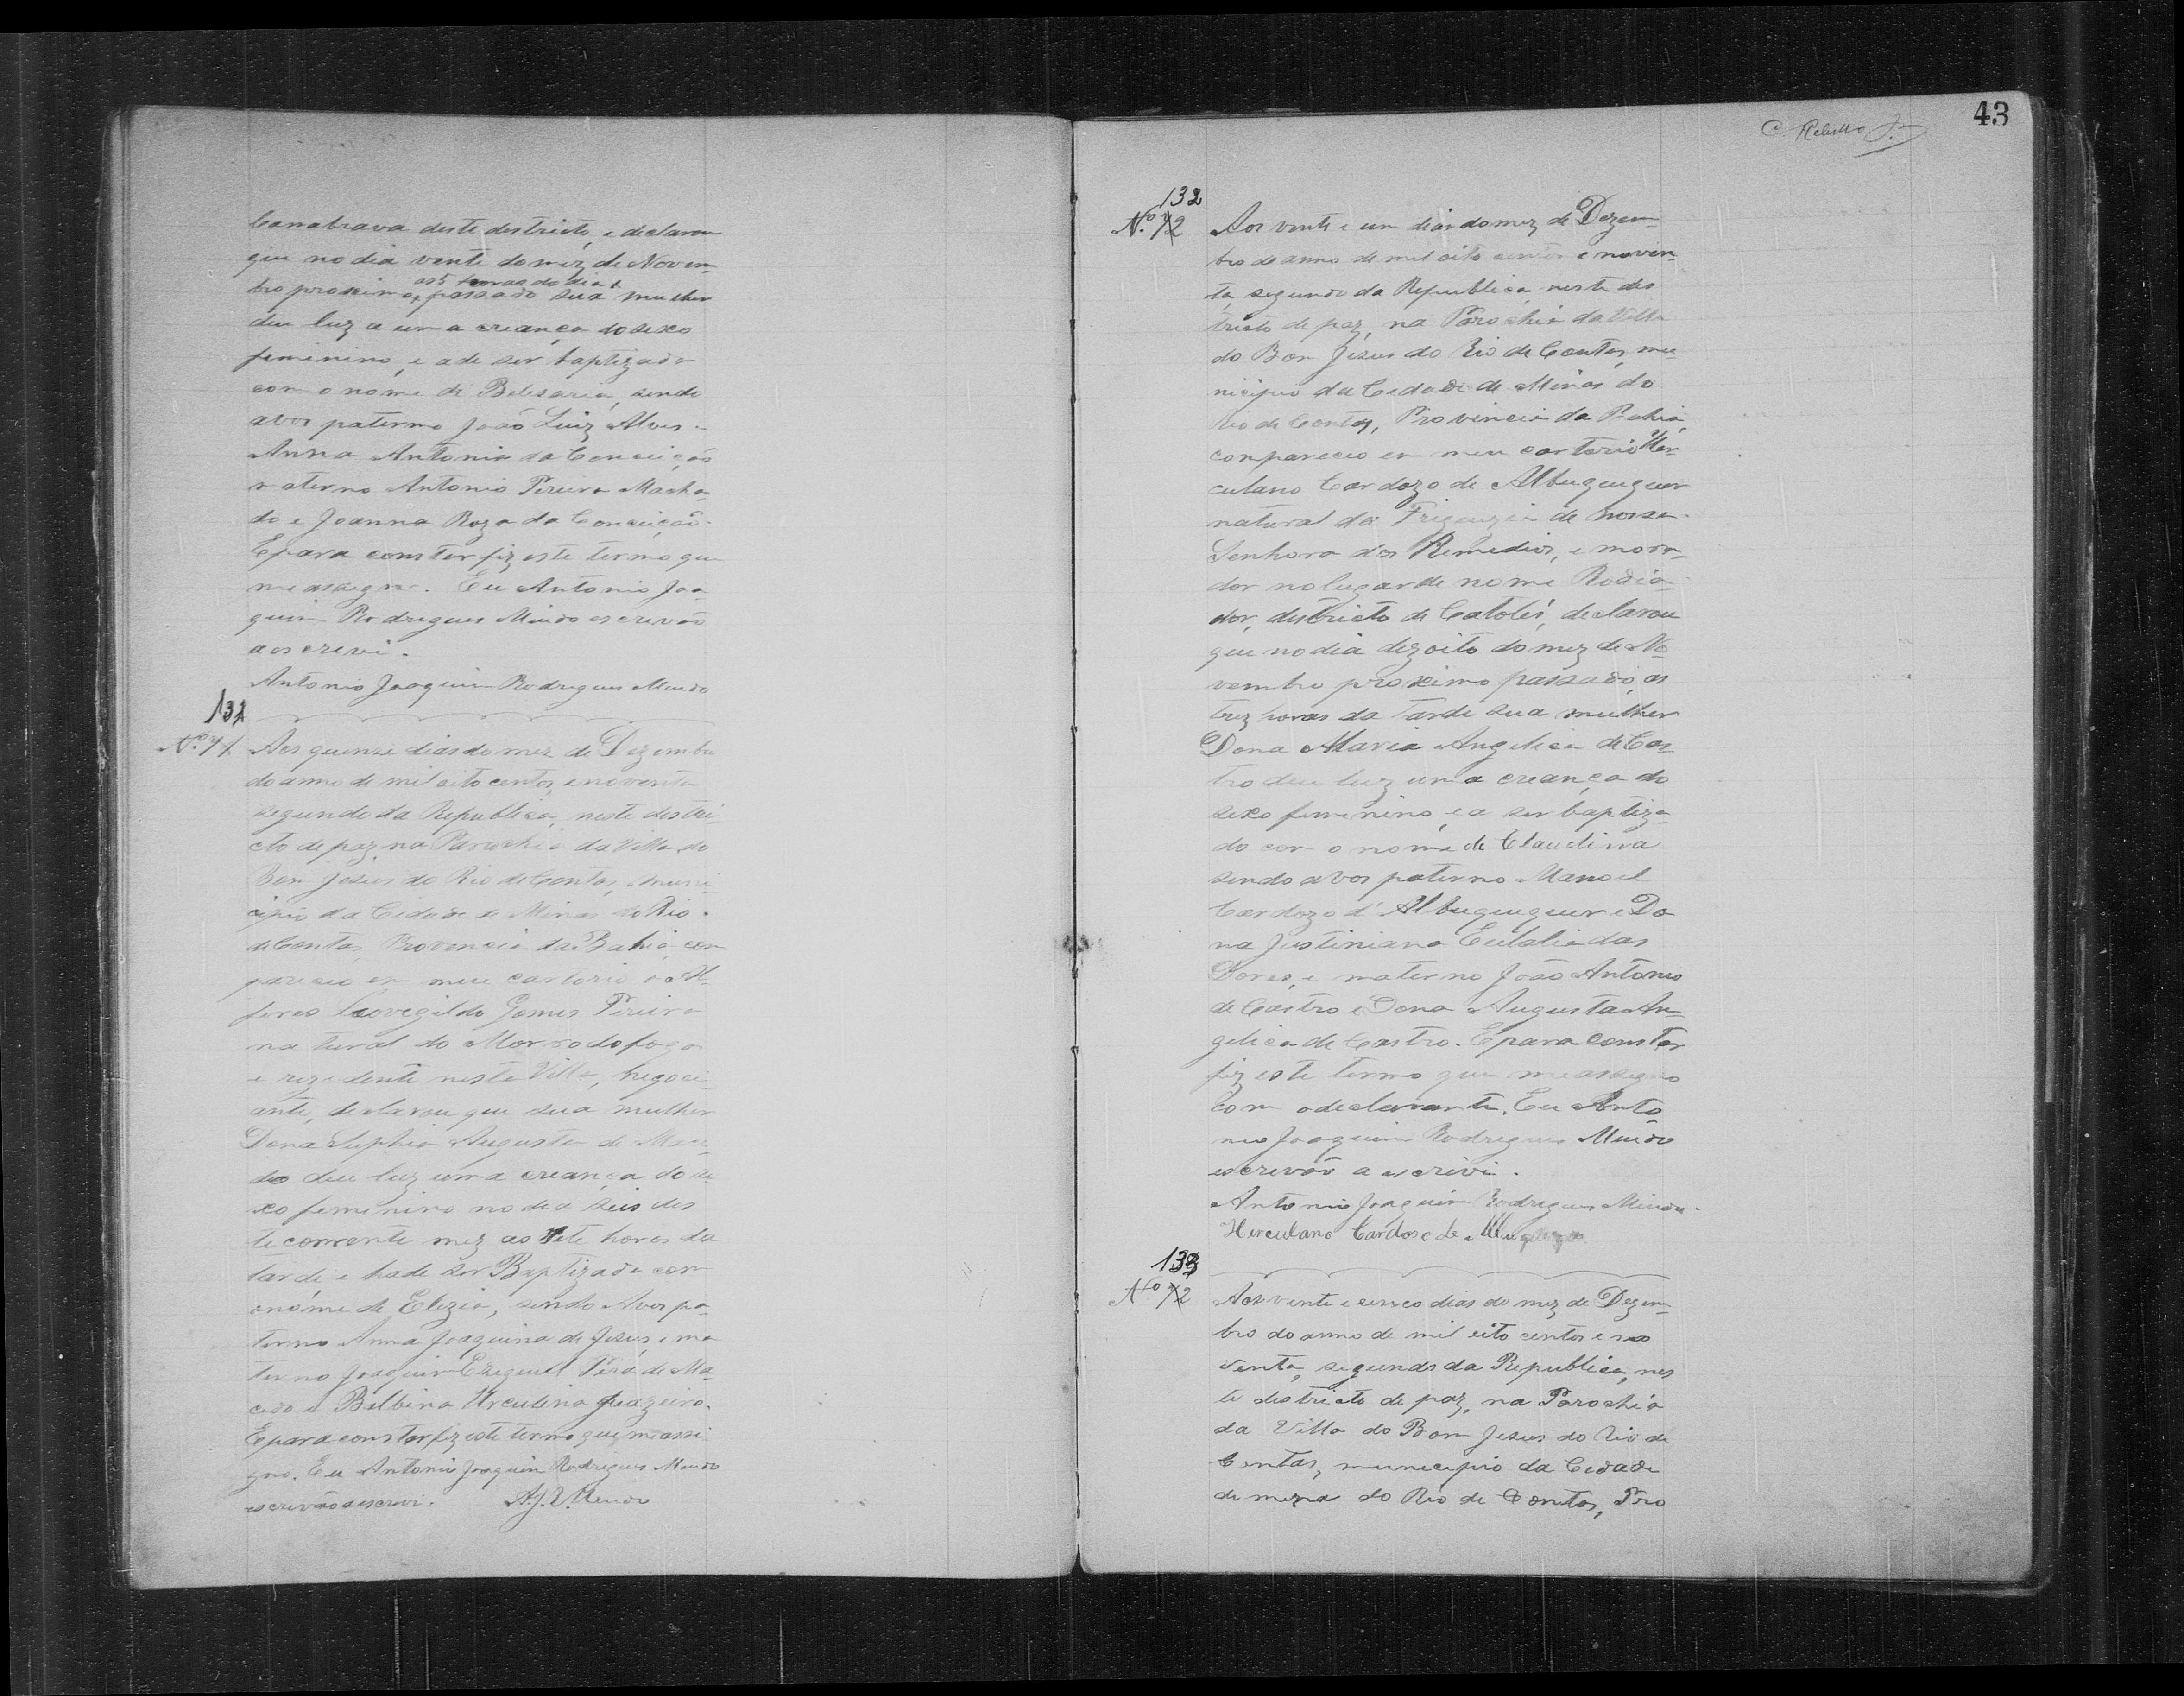 Cannabrava deste destricto, e declarou
que no dia vente do mez de Novem-
as 5 horas do dia
bro proximo, passado sua mulher
deu luz a uma creança do sexo
feminino, e a de ser baptizada
com o nome de Belesaria, sendo
avos paterno João Luiz Alves e
Anna Antonia da Conceição
materno Antonio Pereira Macha-
do e Joanna Roza da Conceição.
E para constar fiz este termo que
me assegno. Eu Antonio Joa-
quim Rodrigues Mindo escrevão
a escrevi.
Antonio Joaquim Rodrigues Mindo
131
N.º 71 Aos quense dias do mez de Dezembro
do anno de mil oito centos e noventa
segundo da Republica, neste destri-
cto de paz, na Parochia da Villa do
Bom Jesus do Rio de Contas, muni-
cipio da Cidade de Minas do Rio
de Contas, Provencia da Bahia, com
pareceo em meu cartorio o Al-
feres Leovegildo Gomes Pereira
natural do Morro do fogo
e rezedente nesta Villa, negoci-
ante, declarou que sua mulher
Dona Sophia Augusta de Mace-
do deu luz uma creança do se-
xo femenino no dia seis des
te corrente mez as sete horas da
tarde e hade ser Baptizada com
o nome de Elezia, sendo Avos pa-
terno Anna Joaquina de Jesus, e ma
terno Joaquim Ezequiel Pera de Ma-
cedo e Balbina Urculina Juazeiro.
E para constar fiz este termo que me assi
gno. Eu Antonio Joaquim Rodrigues Mindo
escrevão a escrevi. A. J. R. Mendo
43
C. Rebello
132
N.º 72 Aos vente e um dias do mez de Dezem-
bro de anno de mil oito centos e noven-
ta, segundo da Republica, neste des
tricto de paz, na Parochia da Villa
do Bom Jesus do Rio de Contas, mu-
nicipio da Cedade de Minas do
Rio de Contas, Provincia da Bahia,
compareceo em meu cartorio Her-
culano Cardozo de Albuquequer
natural da Freguezia de nossa
Senhora dos Remedios, e mora-
dor no lugar de nome Rodia-
dor, destricto de Catolés, declarou
que no dia dezoito do mez de No-
vembro proximo passado, as
trez horas da tarde sua mulher
Dona Maria Angelica de Cas
tro deu luz uma creança do
sexo femenino, e a ser baptiza-
do com o nome de Claudina
sendo avos paterno Manoel
Cardozo d'Albuquequer e Do
na Justiniana Eulalia das
Dores, e materno João Antonio
de Castro e Dona Augusta An-
gelica de Castro. E para constar
fiz este termo que me assegno
com o declarante. Eu Anto
nio Joaquim Rodrigues Mindo
escrevão a escrivi.
Antonio Joaquim Rodrigues Mindo.
Herculano Cardoso de
133
N.º 72 Aos vente e cenco dias do mez de Dezem-
bro do anno de mil oito centos e no
venta, segundo da Republica, nes
te destricto de paz, na Parochia
da Villa do Bom Jesus do Rio de
Contas, municipio da Cedade
de mina do Rio de Contas, Pro